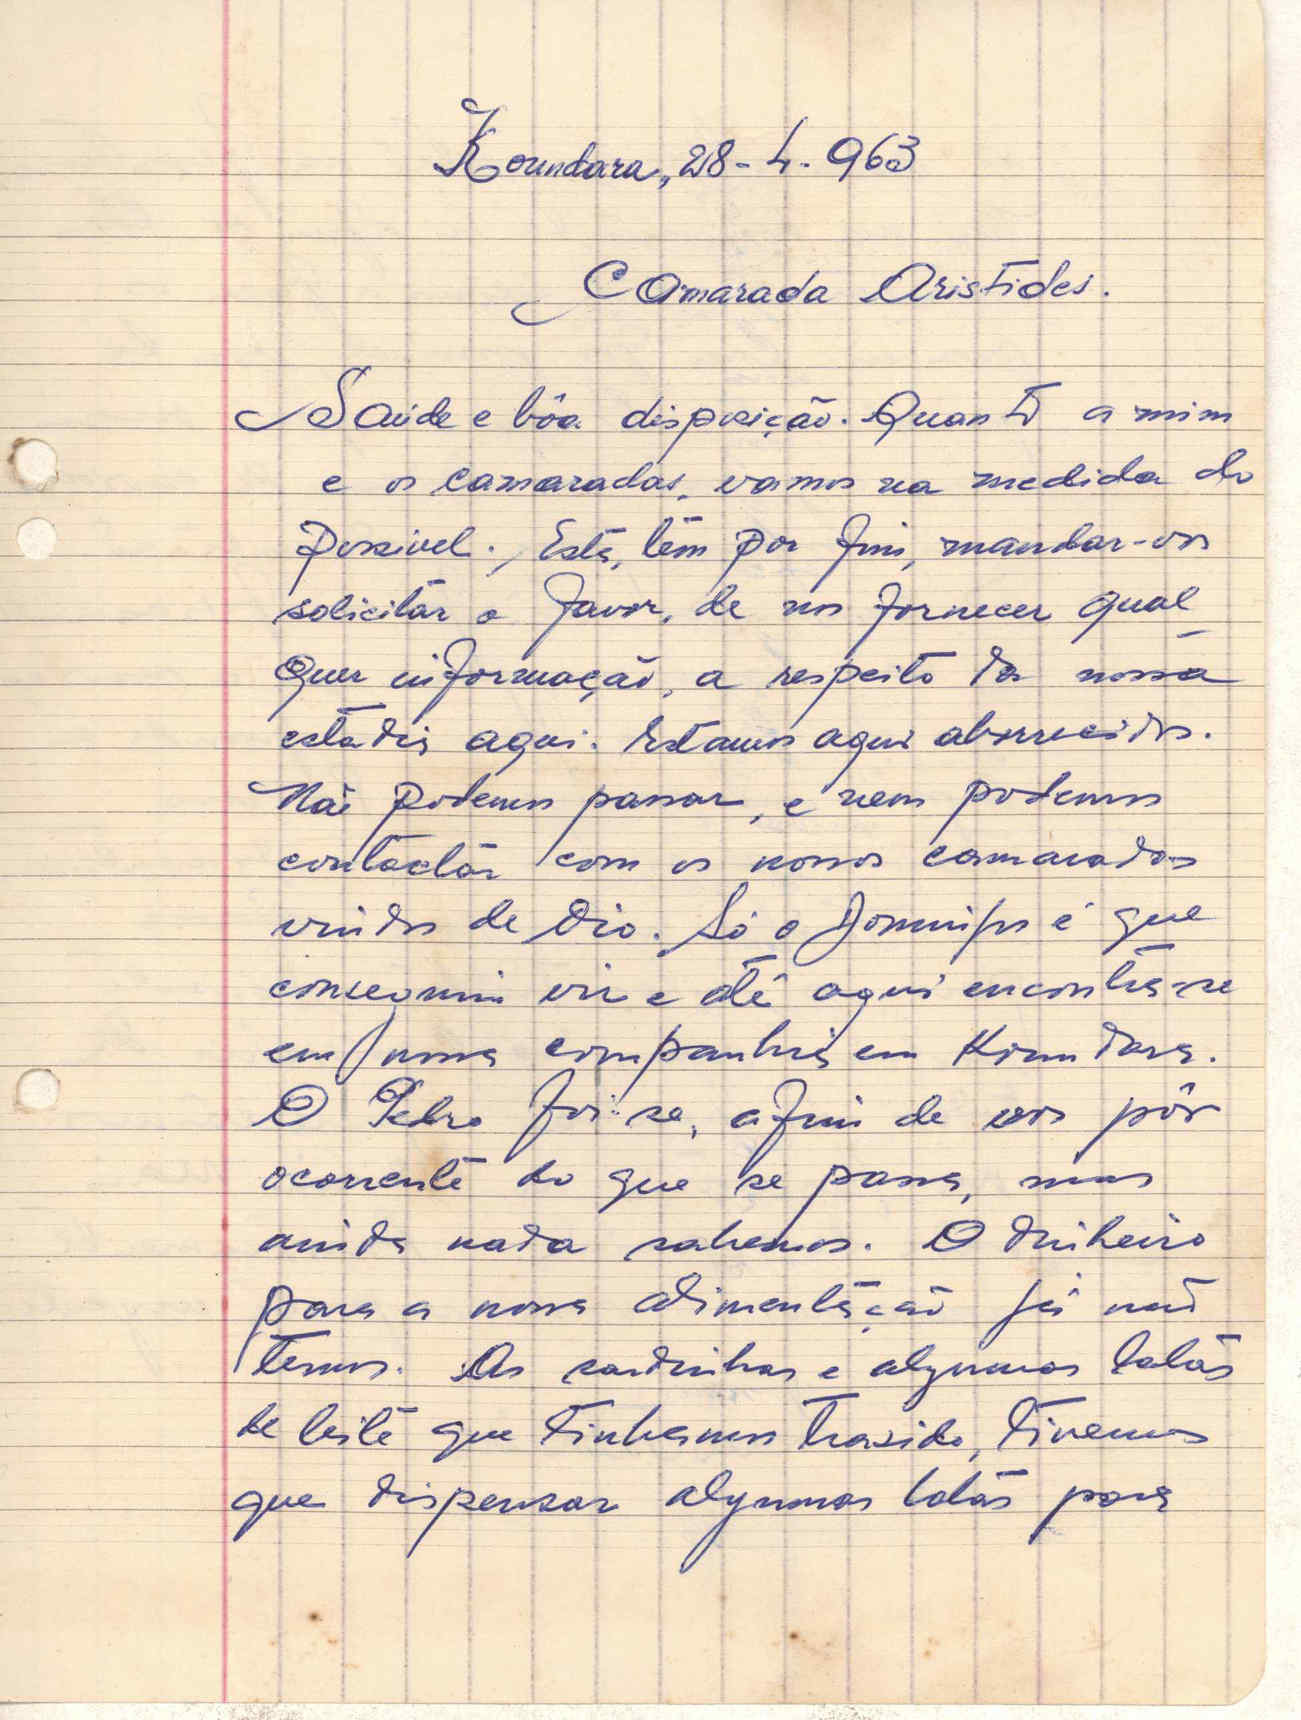 Koundara, 28-4-963
Camarada Aristides.
Saúde e bôa disposição. Quanto a mim
e os camaradas, vamos na medida do
possivel. Esta, têm por fim, mandar-vos
solicitar o favor, de nos fornecer qual
quer informação, a respeito da nossa
estadia aqui. Estamos aqui aborrecidos.
Não podemos passar, e nem podemos
contactár com os nossos camaradas
vindos de Dio. Só o Domingos é que
conseguiu vir e até aqui encontra-se
em nossa companhia em Koundara.
O Pedro foi-se, afim de vos pôr
ocorrente do que se passa, mas
ainda nada sabemos. O dinheiro
para a nossa alimentação já não
temos. As sardinhas e algumas latas
de leite que tinhamos trazido, tivemos
que dispensar algumas latas para